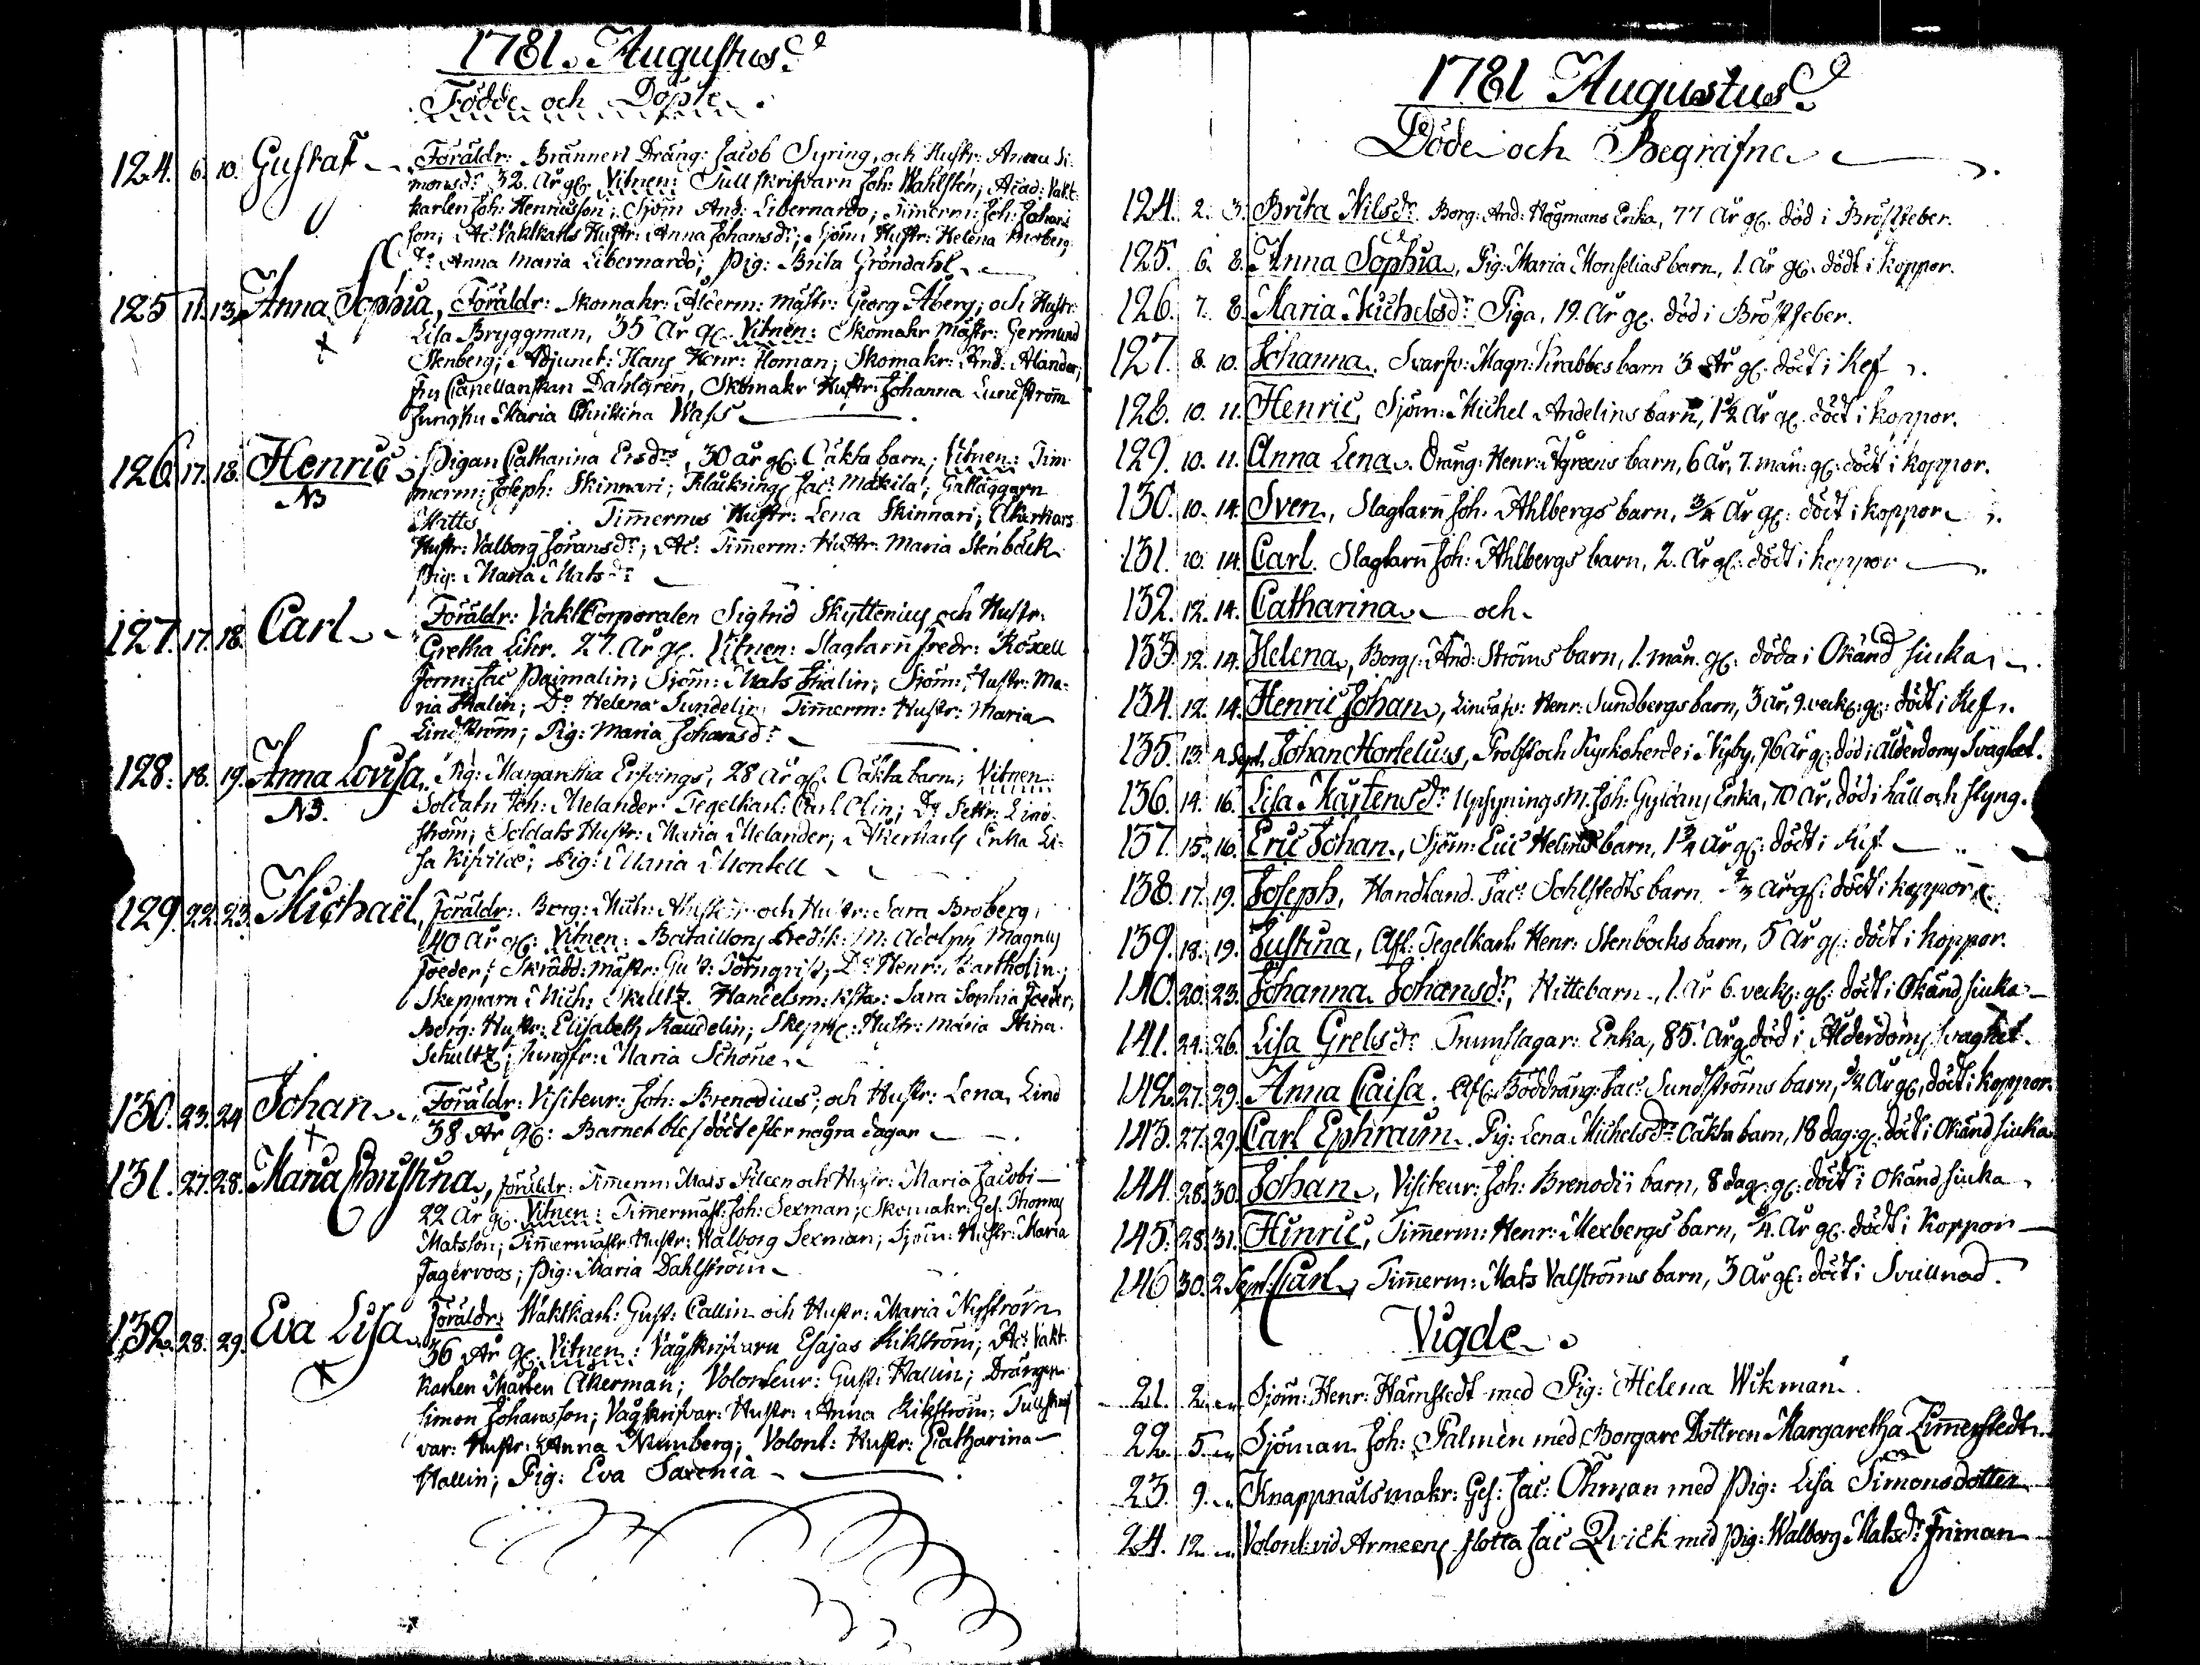 1781. Augustus.
Födde och Döpte.
124. 6. 10. Gustaf Föräldr: Brännerl Dräng: Jacob Syring, och Hustr: Anna Si-
monsdr 32. År gl. Vitnen: Tullskrifvarn Joh: Wahlsten; Acad: Vakt-
karlen Joh: Henricsson; Sjöm And: Libernardo; Timerm: Joh: Johans
son; Ac: Vaktkarls Hustr: Anna Johansdr; Sjöm: Hustr: Helena
Do Anna Maria Libernardo; Pig: Brita Gröndahl
125 11. 13. Anna Sophia, Föräldr: Skomakr: Ålderm: mästr: Georg Åberg, och Hustr:
Lisa Bryggman, 35 År gl. Vitnen: Skomakr Mästr: Germund
Stenberg; Adjunct: Hans Henr: Homan; Skomakr: And: Alander;
Fru Capellanskan Dahlgren, Skomakr Hustr: Johanna Lundström
Jungfru Maria Christina Wass
126. 17. 18. Henric Pigan Catharina Ersdr, 30 år gl: Oäkta barn; Vitnen: Tim-
NB merm: Joseph: Skinnari; Jac: Mäkilä;
Mitts Timermns Hustr: Lena Skinnari; Åkerkars
Hustr: Valborg Göransdr; Ac: Timerm: Hustr: Maria Stenbäck
Pig: Maria Matsdr
127. 17. 18. Carl Föräldr: VaktCorporalen Sigfrid Skyttenius och Hustr:
Gretha Lihr. 27. År gl. Vitnen: Slagtarn Fredr: Roxell
Jac Paimalin; Sjöm: Mats Thalin; Sjöm: Hustr: Ma-
ria Thalin; Do Helena Sundelin; Timerm: Hustr: Maria
Lindström; Pig: Maria Johansdr
128. 18. 19. Anna Lovisa, Pig: Margaretha Ervings, 28 år gl. Oäkta barn; Vitnen
NB. Soldatn Joh: Melander Tegelkarl: Carl Olin; Do Pettr: Lind-
ström; Soldats Hustr: Maria Melander; Åkerkarls Enka Li-
sa; Pig: Maria Montell
129. 22. 23. Michael, Föräldr: Borg: Mich: och Hustr: Sara Broberg,
40 År gl: Vitnen: Bataillons Predik: M: Adolph Magnus
Foeder; Skrädd: mästr: Gust: Törnqvist; Do Henr: Bartholin;
Skepparn Mich: Skultz. Handelsm: Hstr: Sara Sophia Foeder,
Borg: Hustr: Elisabeth Raudelin; Skepp: Hustr: Maria Stina
Schultz; Jungfr: Maria Schöne
130. 23. 24 Johan Föräldr: Visiteur: Joh: Brenodius, och Hustr: Lena Lind
38 År gl: Barnet blef dödt efter några dagar
131. 27. 28. Maria Christina, Föräldr: Timerm: Mats Fileen och Hustr: Maria Jacobi
22 År gl. Vitnen: Timermäst: Joh: Sexman; Skomakr: Ges. Thomas
Matsson; Timermästr Hustr: Walborg Sexman; Sjöm: Hustr: Maria
Jagervoos; Pig: Maria Dahlström
132. 28. 29. Eva Lisa Föräldr: Waktkarl: Gust: Callin och Hustr: Maria Nyström
36 År gl. Vitnen: Vågskrifvarn Esajas Kikström; Ac: Vakt-
karlen Mårten Åkerman; Volonteur: Gust: Hallin; Drängen
Simon Johansson; Vågskrifvar: Hustr: Anna Kikström; Tullskrif
var: Hustr: Anna Numberg; Volont: Hustr: Catharina
Hallin; Pig: Eva Saxenia
1781 Augustus
Döde och Begrafne
124. 2. 3. Brita Nilsdr. Borg: And: Högmans Enka, 77 År gl. död i Bröstfeber.
125. 6. 8. Anna Sophia, Pig: Maria Monselias barn, 1. År gl. dödt i koppor.
126. 7. 8. Maria Michelsdr Piga, 19. År gl. död i Bröstfeber.
127. 8. 10. Johanna, Svarfv: Magn: Krabbes barn 3 År gl. dödt i Kef
128. 10. 11. Henric, Sjöm: Michel Andelins barn, 1½ År gl. dödt i koppor.
129. 10. 11. Anna Lena. Dräng: Henr: Ågreens barn, 6 År, 7. mån: gl: dödt i koppor.
130. 10. 14. Sven, Slagtarn Joh. Ahlbergs barn, ¾ År gl: dödt i koppor
131. 10. 14. Carl Slagtarn Joh: Ahlbergs barn, 2. År gl: dödt i koppor
132. 12. 14. Catharina och
133. 12. 14. Helena, Borg: And: Ströms barn, 1. mån. gl: döda i Okänd siuka
134. 12. 14. Henric Johan, Lindväfv: Henr: Sundbergs barn, 3 År, 9. veck: gl: dödt i Kef
135. 13. 4 Sept. Johan Hortelius, Prost och Kyrkoherde i Nyby, 76 År gl: död i Ålderdoms Svaghet.
136. 14. 16. Lisa Mårtensdr Upsyningsm. Joh: Gyldans Enka, 70 År, död i håll och styng.
137. 15. 16. Eric Johan, Sjöm: Eric Helins barn, 1¾ År gl: dödt i Kef
138. 17. 19. Joseph, Handtland. Jac: Sohlstedts barn ⅔ År gl: dödt i koppor
139. 18. 19. Justina, Afl: Tegelkarl Henr: Stenbocks barn, 5 År gl: dödt i koppor.
140. 20. 23. Johanna Johansdr, Hittebarn, 1. År 6. veck: gl: dödt i Okänd siuka
141. 24. 26. Lisa Grelsdr Trumslagar: Enka, 85. År gl död i Ålderdoms svaghet.
142. 27. 29. Anna Caisa. Afl: Boddräng: Jac: Sundströms barn, ½ År gl, dödt i koppor
143. 27. 29. Carl Ephraim. Pig: Lena Michelsdr Oäkta barn, 18 dag: gl. dödt i Okänd siuka
144. 28. 30. Johan, Visiteur: Joh: Brenodii barn, 8 dag: gl: dödt i Okänd siuka
145. 28. 31. Hinric, Timerm: Henr: Mexbergs barn, ¾ År gl: dödt i Koppor
146 30. 2 Sept: Carl, Timerm: Mats Valströms barn, 3 År gl: dödt i Svullnad.
Vigde
21. 2. Sjöm: Henr: Hämstedt med Pig: Helena Wikman
22. 5. Sjöman Joh: Palmén med Borgare Dottren Margaretha Zimerstedt
23. 9. Knappnålsmakr: Ges: Jac: Öhman med Pig: Lisa Simonsdotter
24. 12. Volont: vid Armeens flotta Jac Qvick med Pig: Walborg Matsdr Friman